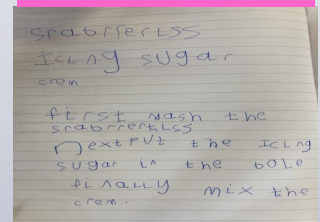 srabrrertss
Icing sugar
crem
first mash the
srabrrertss
next put the Icing
sugar in the bole
finally mix the
crem.